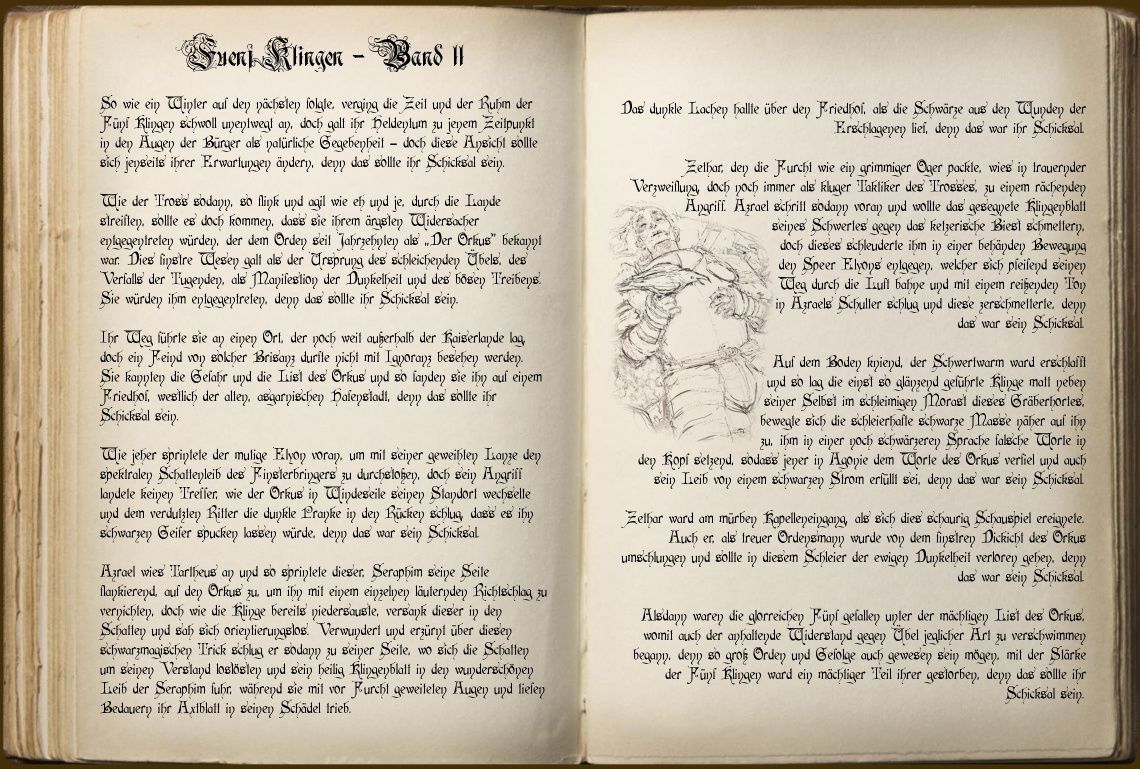 Fuenf Klingen – Band II
So wie ein Winter auf den nächsten folgte, verging die Zeit und der Ruhm der
Fünf Klingen schwoll unentwegt an, doch galt ihr Heldentum zu jenem Zeitpunkt
in den Augen der Bürger als natürliche Gegebenheit – doch diese Ansicht sollte
sich jenseits ihrer Erwartungen ändern, denn das sollte ihr Schicksal sein.
Wie der Tross sodann, so flink und agil wie eh und je, durch die Lande
streiften, sollte es doch kommen, dass sie ihrem ärgsten Widersacher
entgegentreten würden, der dem Orden seit Jahrzehnten als „Der Orkus" bekannt
war. Dies finstre Wesen galt als der Ursprung des schleichenden Übels, des
Verfalls der Tugenden, als Manifestion der Dunkelheit und des bösen Treibens.
Sie würden ihm entgegentreten, denn das sollte ihr Schicksal sein.
Ihr Weg führte sie an einen Ort, der noch weit außerhalb der Kaiserlande lag,
doch ein Feind von solcher Brisanz durfte nicht mit Ignoranz besehen werden.
Sie kannten die Gefahr und die List des Orkus und so fanden sie ihn auf einem
Friedhof, westlich der alten, asgarnischen Hafenstadt, denn das sollte ihr
Schicksal sein.
Wie jeher sprintete der mutige Elyon voran, um mit seiner geweihten Lanze den
spektralen Schattenleib des Finsterbringers zu durchstoßen, doch sein Angriff
landete keinen Treffer, wie der Orkus in Windeseile seinen Standort wechselte
und dem verdutzten Ritter die dunkle Pranke in den Rücken schlug, dass es ihn
schwarzen Geifer spucken lassen würde, denn das war sein Schicksal.
Azrael wies Tartheus an und so sprintete dieser, Seraphim seine Seite
flankierend, auf den Orkus zu, um ihn mit einem einzelnen läuternden Richtschlag zu
vernichten, doch wie die Klinge bereits niedersauste, versank dieser in den
Schatten und sah sich orientierungslos. Verwundert und erzürnt über diesen
schwarzmagischen Trick schlug er sodann zu seiner Seite, wo sich die Schatten
um seinen Verstand loslösten und sein heilig Klingenblatt in den wunderschönen
Leib der Seraphim fuhr, während sie mit vor Furcht geweiteten Augen und tiefen
Bedauern ihr Axtblatt in seinen Schädel trieb.
Das dunkle Lachen hallte über den Friedhof, als die Schwärze aus den Wunden der
Erschlagenen lief, denn das war ihr Schicksal.
Zethar, den die Furcht wie ein grimmiger Oger packte, wies in trauernder
Verzweiflung, doch noch immer als kluger Taktiker des Trosses, zu einem rächenden
Angriff. Azrael schritt sodann voran und wollte das gesegnete Klingenblatt
seines Schwertes gegen das ketzerische Biest schmettern,
doch dieses schleuderte ihm in einer behänden Bewegung
den Speer Elyons entgegen, welcher sich pfeifend seinen
Weg durch die Luft bahne und mit einem reißenden Ton
in Azraels Schulter schlug und diese zerschmetterte, denn
das war sein Schicksal.
Auf dem Boden kniend, der Schwertwarm ward erschlafft
und so lag die einst so glänzend geführte Klinge matt neben
seiner Selbst im schleimigen Morast dieses Gräberhortes,
bewegte sich die schleierhafte schwarze Masse näher auf ihn
zu, ihm in einer noch schwärzeren Sprache falsche Worte in
den Kopf setzend, sodass jener in Agonie dem Worte des Orkus verfiel und auch
sein Leib von einem schwarzen Strom erfüllt sei, denn das war sein Schicksal.
Zethar ward am mürben Kapelleneingang, als sich dies schaurig Schauspiel ereignete.
Auch er, als treuer Ordensmann wurde von dem finstren Dickicht des Orkus
umschlungen und sollte in diesem Schleier der ewigen Dunkelheit verloren gehen, denn
das war sein Schicksal.
Alsdann waren die glorreichen Fünf gefallen unter der mächtigen List des Orkus,
womit auch der anhaltende Widerstand gegen Übel jeglicher Art zu verschwimmen
begann, denn so groß Orden und Gefolge auch gewesen sein mögen, mit der Stärke
der Fünf Klingen ward ein mächtiger Teil ihrer gestorben, denn das sollte ihr
Schicksal sein.